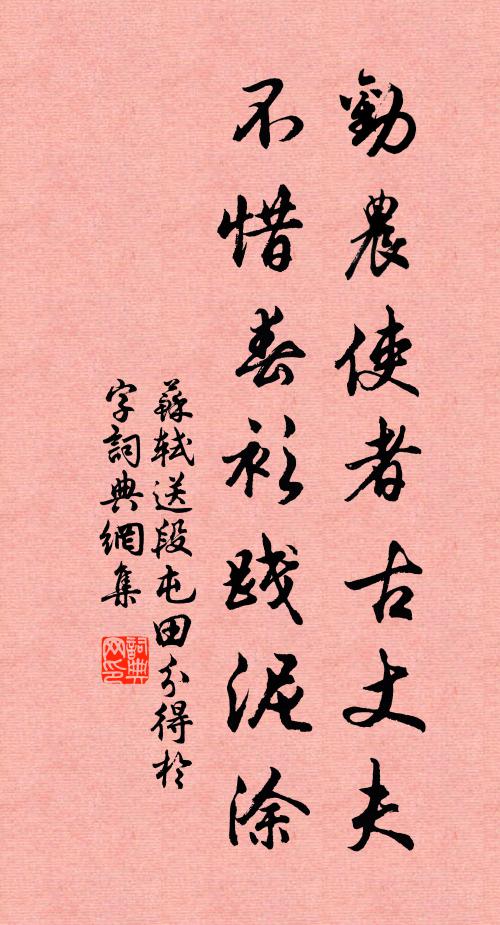 勸農使者古丈夫
不惜春衫踐泥涂
蘇軾送段屯田分得於
字詞典網集
詞典網印